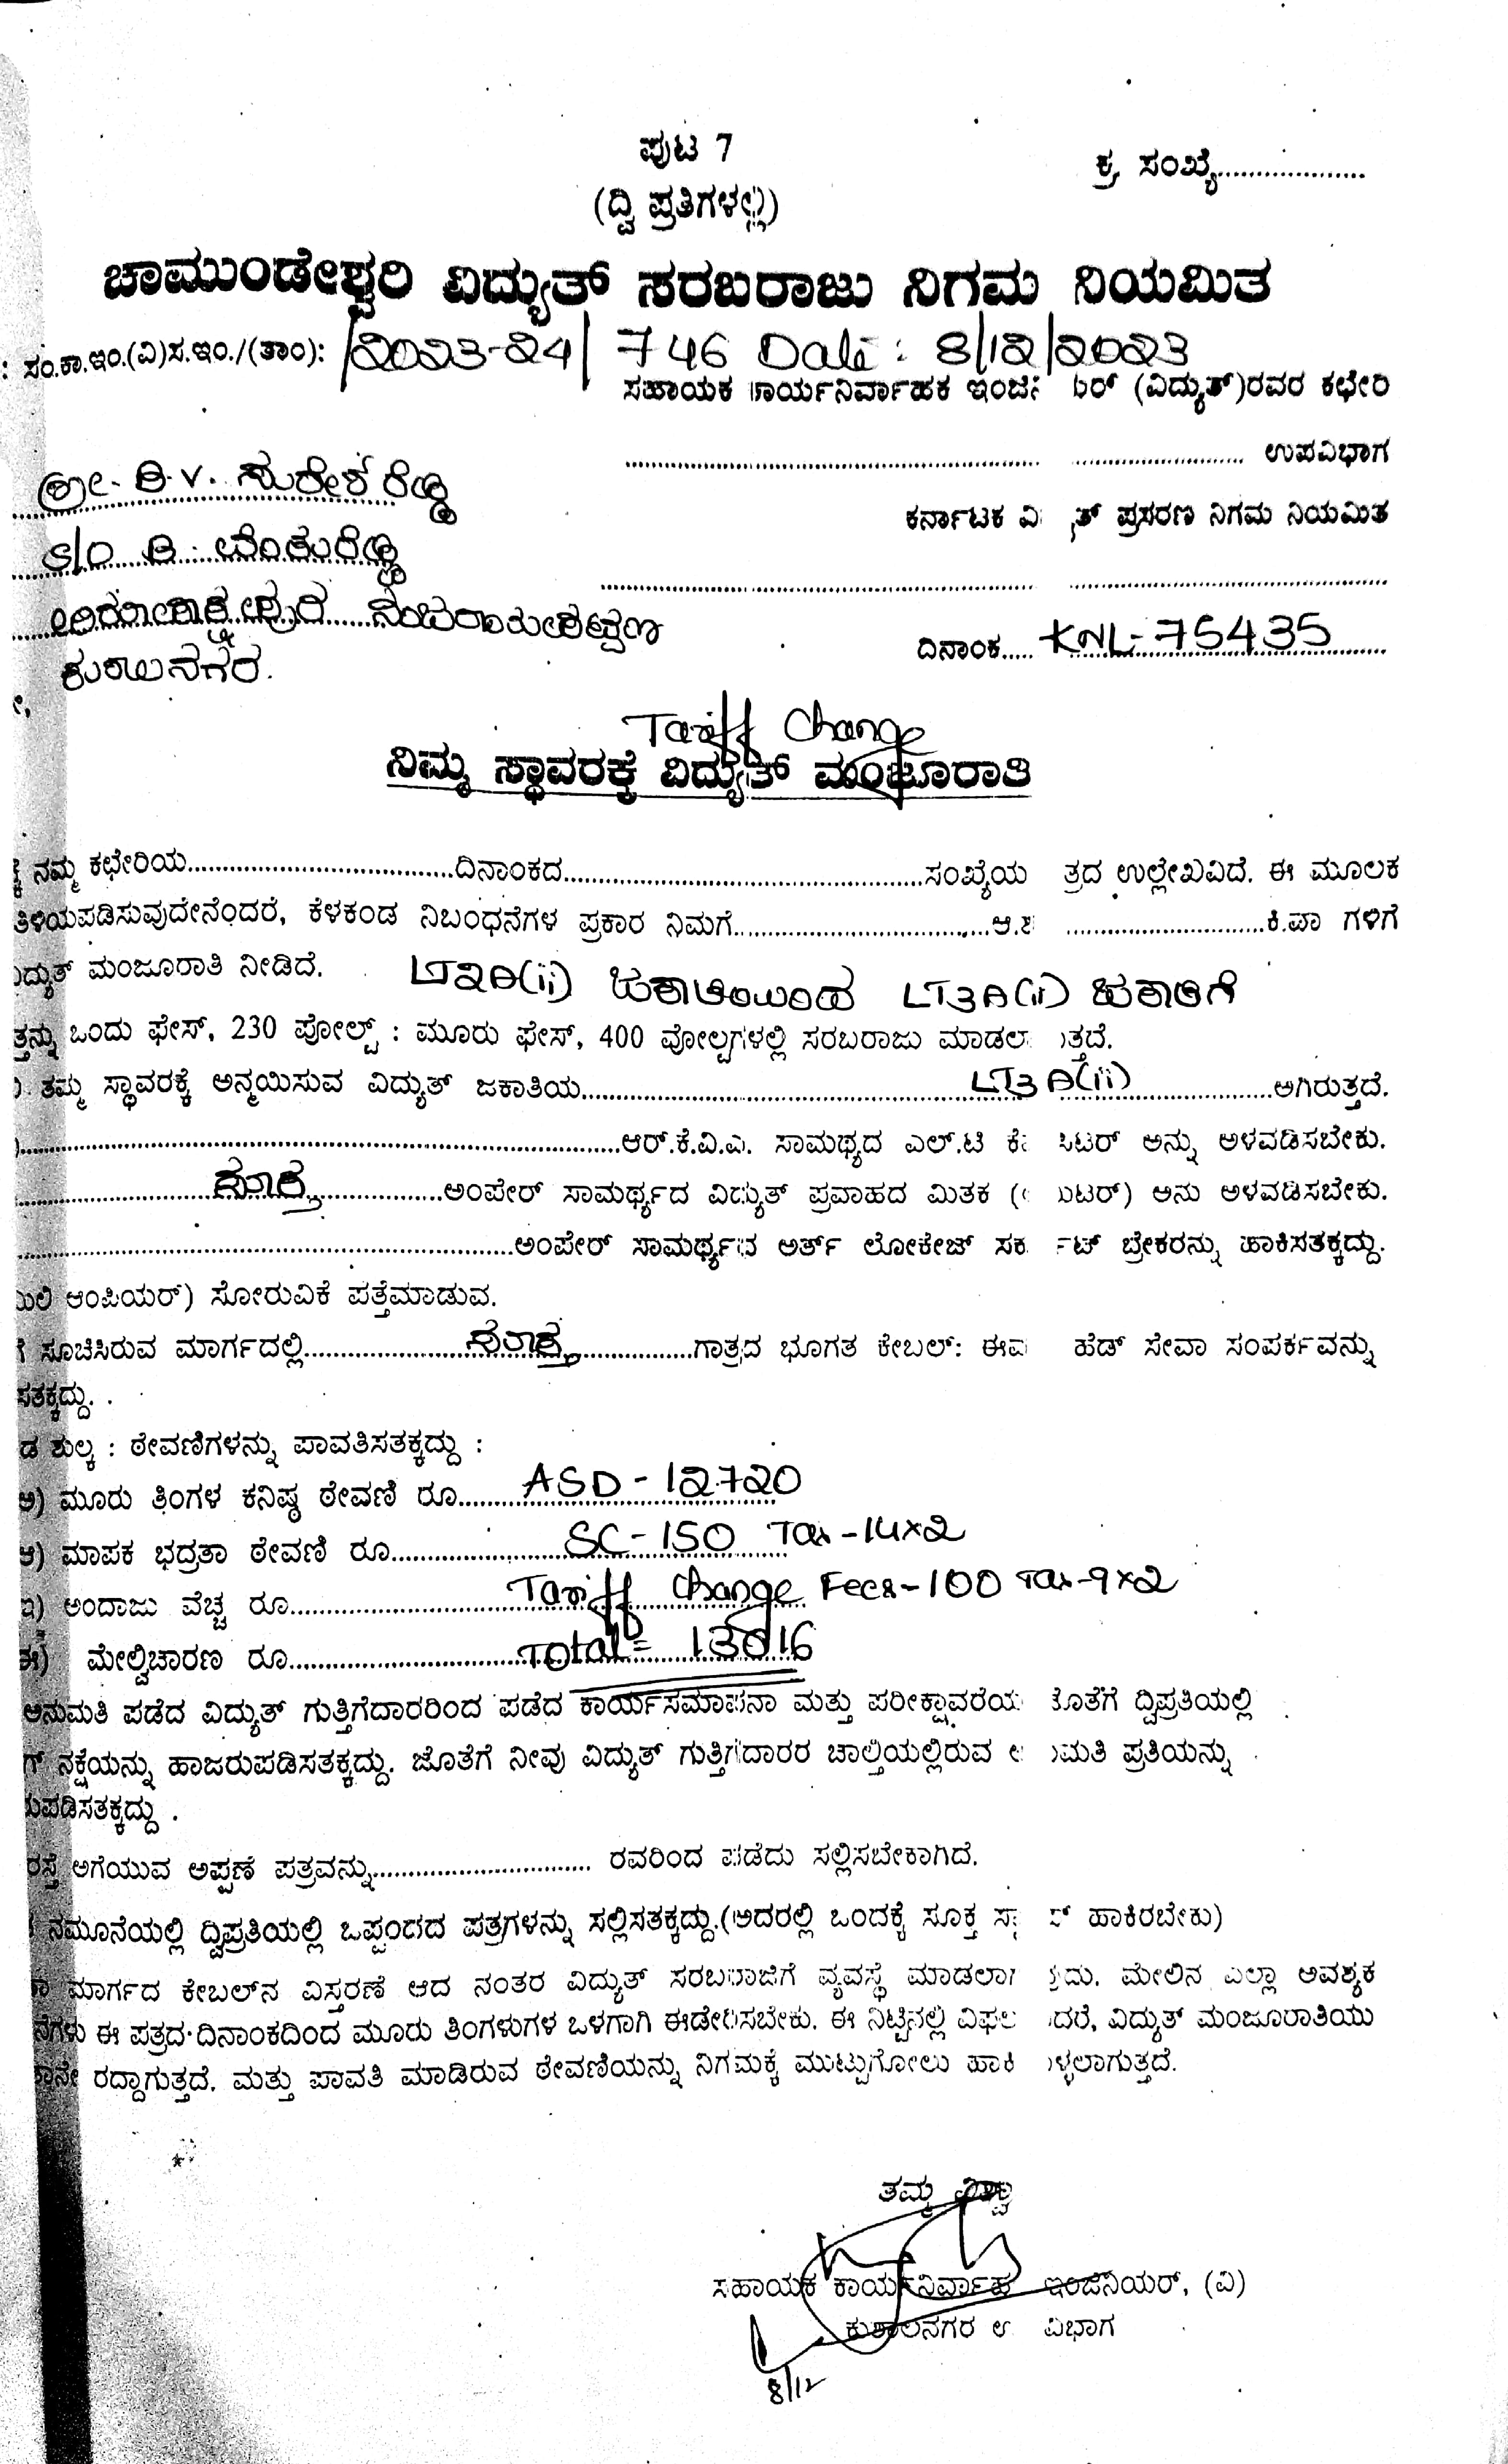 ಪುಟ 7
ಕ್ರ. ಸಂಖ್ಯೆ....................
(ದ್ವಿ ಪ್ರತಿಗಳಲ್ಲಿ)
ಚಾಮುಂಡೇಶ್ವರಿ ವಿದ್ಯುತ್ ಸರಬರಾಜು ನಿಗಮ ನಿಯಮಿತ
: ಸಂ.ಕಾ.ಇಂ.(ವಿ)ಸ.ಇಂ./(ತಾಂ): /2023-24/ 746 Date: 8/12/2023
ಸಹಾಯಕ ಕಾರ್ಯನಿರ್ವಾಹಕ ಇಂಜಿನಿಯರ್ (ವಿದ್ಯುತ್)ರವರ ಕಛೇರಿ
.................... ಉಪವಿಭಾಗ
ಶ್ರೀ. B.V. ಸುರೇಶ ರೆಡ್ಡಿ
ಕರ್ನಾಟಕ ವಿ ತ್ ಪ್ರಸರಣ ನಿಗಮ ನಿಯಮಿತ
S/O B.
ಕುಶಾಲನಗರ.
ದಿನಾಂಕ..... KNL-75435
Tariff Change
ನಿಮ್ಮ ಸ್ಥಾವರಕ್ಕೆ ವಿದ್ಯುತ್ ಮಂಜೂರಾತಿ
ನಮ್ಮ ಕಛೇರಿಯ....................ದಿನಾಂಕದ....................ಸಂಖ್ಯೆಯ ತ್ರದ ಉಲ್ಲೇಖವಿದೆ. ಈ ಮೂಲಕ
ತಿಳಿಯಪಡಿಸುವುದೇನೆಂದರೆ, ಕೆಳಕಂಡ ನಿಬಂಧನೆಗಳ ಪ್ರಕಾರ ನಿಮಗೆ....................ಆ.ಶ ....................ಕಿ.ವಾ ಗಳಿಗೆ
ದ್ಯುತ್ ಮಂಜೂರಾತಿ ನೀಡಿದೆ. LT2A(ii) ಜಕಾತಿಯಿಂದ LT3A(ii) ಜಕಾತಿಗೆ
ತ್ತನ್ನು ಒಂದು ಫೇಸ್, 230 ವೋಲ್ಟ್ : ಮೂರು ಫೇಸ್, 400 ವೋಲ್ಟಗಳಲ್ಲಿ ಸರಬರಾಜು ಮಾಡಲ ತ್ತದೆ.
. ತಮ್ಮ ಸ್ಥಾವರಕ್ಕೆ ಅನ್ವಯಿಸುವ ವಿದ್ಯುತ್ ಜಕಾತಿಯ.................... LT3A(ii) ....................ಆಗಿರುತ್ತದೆ.
....................ಆರ್.ಕೆ.ವಿ.ಎ. ಸಾಮರ್ಥ್ಯದ ಎಲ್.ಟಿ ಕೆ ಸಿಟರ್ ಅನ್ನು ಅಳವಡಿಸಬೇಕು.
....................ಅಂಪೇರ್ ಸಾಮರ್ಥ್ಯದ ವಿದ್ಯುತ್ ಪ್ರವಾಹದ ಮಿತಕ ( ಟರ್) ಅನು ಅಳವಡಿಸಬೇಕು.
....................ಅಂಪೇರ್ ಸಾಮರ್ಥ್ಯದ ಅರ್ತ್ ಲೋಕೇಜ್ ಸರ್ ಟ್ ಬ್ರೇಕರನ್ನು ಹಾಕಿಸತಕ್ಕದ್ದು.
ಲಿ ಆಂಪಿಯರ್) ಸೋರುವಿಕೆ ಪತ್ತೆಮಾಡುವ.
ಸೂಚಿಸಿರುವ ಮಾರ್ಗದಲ್ಲಿ....................ಗಾತ್ರದ ಭೂಗತ ಕೇಬಲ್: ಈವ ಹೆಡ್ ಸೇವಾ ಸಂಪರ್ಕವನ್ನು
ಸತಕ್ಕದ್ದು. .
ಡ ಶುಲ್ಕ : ಠೇವಣಿಗಳನ್ನು ಪಾವತಿಸತಕ್ಕದ್ದು :
ಅ) ಮೂರು ತಿಂಗಳ ಕನಿಷ್ಠ ಠೇವಣಿ ರೂ.......... ASD - 12720
ಆ) ಮಾಪಕ ಭದ್ರತಾ ಠೇವಣಿ ರೂ.......... SC - 150 Tax - 14x2
ಇ) ಅಂದಾಜು ವೆಚ್ಚ ರೂ.......... Tariff Change Fees - 100 Tax - 9x2
ಈ) ಮೇಲ್ವಿಚಾರಣ ರೂ.......... Total = 13016
ಅನುಮತಿ ಪಡೆದ ವಿದ್ಯುತ್ ಗುತ್ತಿಗೆದಾರರಿಂದ ಪಡೆದ ಕಾರ್ಯಸಮಾಪನಾ ಮತ್ತು ಪರೀಕ್ಷಾವರೆಯ ಜೊತೆಗೆ ದ್ವಿಪ್ರತಿಯಲ್ಲಿ
ಗ್ ನಕ್ಷೆಯನ್ನು ಹಾಜರುಪಡಿಸತಕ್ಕದ್ದು. ಜೊತೆಗೆ ನೀವು ವಿದ್ಯುತ್ ಗುತ್ತಿಗೆದಾರರ ಚಾಲ್ತಿಯಲ್ಲಿರುವ ಮತಿ ಪ್ರತಿಯನ್ನು
ುಪಡಿಸತಕ್ಕದ್ದು .
ರಸ್ತೆ ಅಗೆಯುವ ಅಪ್ಪಣೆ ಪತ್ರವನ್ನು.................... ರವರಿಂದ ಪಡೆದು ಸಲ್ಲಿಸಬೇಕಾಗಿದೆ.
ನಮೂನೆಯಲ್ಲಿ ದ್ವಿಪ್ರತಿಯಲ್ಲಿ ಒಪ್ಪಂದದ ಪತ್ರಗಳನ್ನು ಸಲ್ಲಿಸತಕ್ಕದ್ದು.(ಅದರಲ್ಲಿ ಒಂದಕ್ಕೆ ಸೂಕ್ತ ಸ್ಟ ್ ಹಾಕಿರಬೇಕು)
ಮಾರ್ಗದ ಕೇಬಲ್‌ನ ವಿಸ್ತರಣೆ ಆದ ನಂತರ ವಿದ್ಯುತ್ ಸರಬರಾಜಿಗೆ ವ್ಯವಸ್ಥೆ ಮಾಡಲಾಗ ದು. ಮೇಲಿನ ಎಲ್ಲಾ ಅವಶ್ಯಕ
ನೆಗಳು ಈ ಪತ್ರದ ದಿನಾಂಕದಿಂದ ಮೂರು ತಿಂಗಳುಗಳ ಒಳಗಾಗಿ ಈಡೇರಿಸಬೇಕು. ಈ ನಿಟ್ಟಿನಲ್ಲಿ ವಿಫಲ ದರೆ, ವಿದ್ಯುತ್ ಮಂಜೂರಾತಿಯು
ತಾನೇ ರದ್ದಾಗುತ್ತದೆ. ಮತ್ತು ಪಾವತಿ ಮಾಡಿರುವ ಠೇವಣಿಯನ್ನು ನಿಗಮಕ್ಕೆ ಮುಟ್ಟುಗೋಲು ಹಾಕಿ ಳ್ಳಲಾಗುತ್ತದೆ.
ತಮ್ಮ ವಿಶ್ವಾ
ಸಹಾಯಕ ಕಾರ್ಯನಿರ್ವಾಹಕ ಇಂಜಿನಿಯರ್, (ವಿ)
ಕುಶಾಲನಗರ ಉ ವಿಭಾಗ
8/12